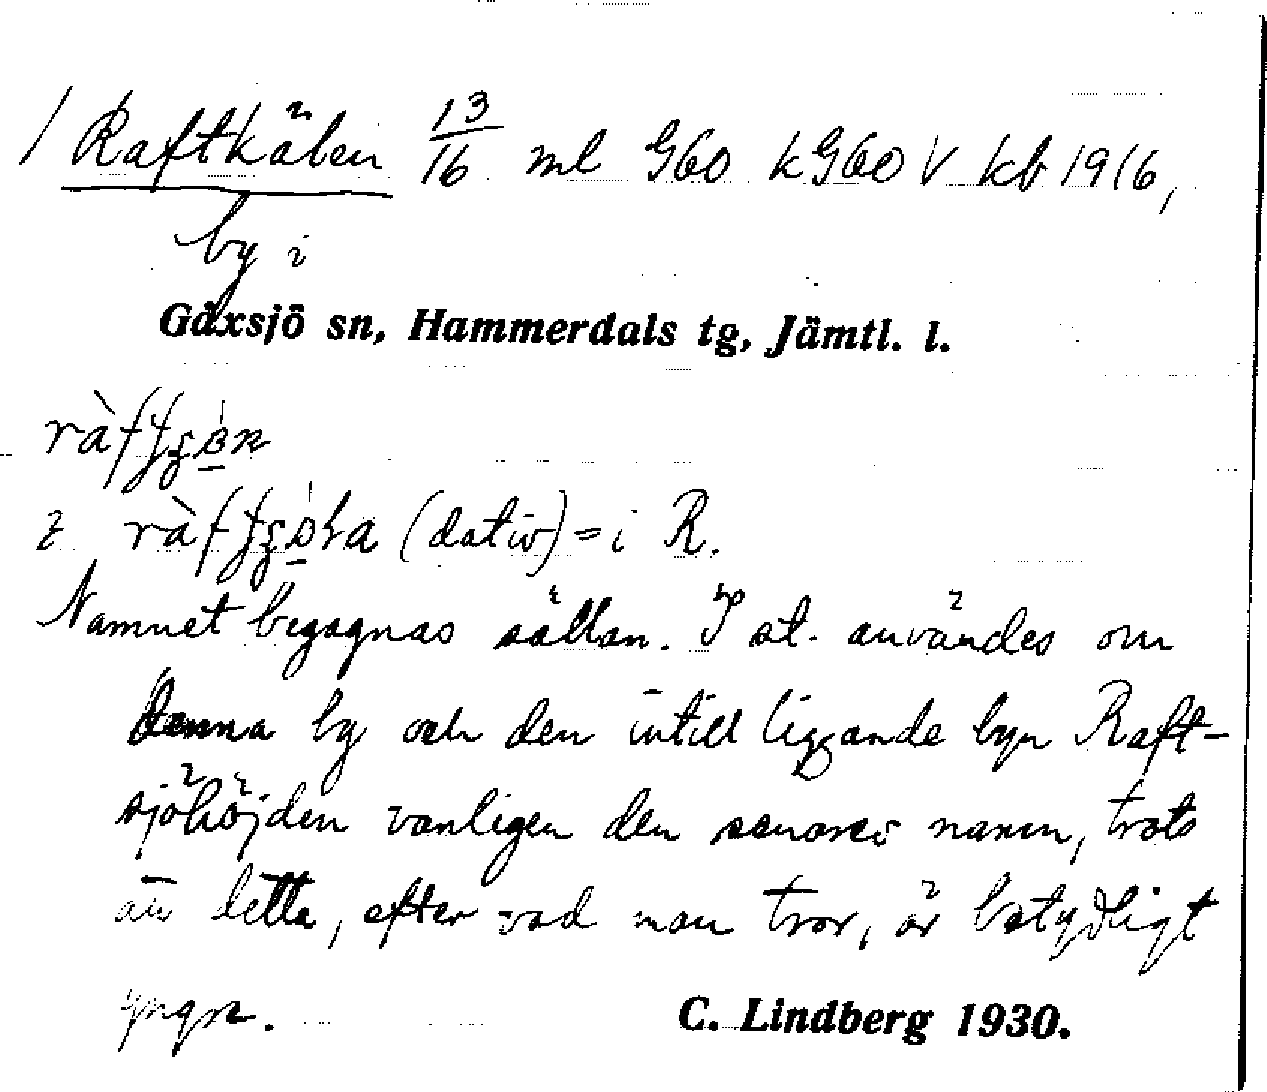 / Raftkälen 13/16 ml G60 kG60 V kb 1916,
by i
Gåxsjö sn, Hammerdals tg, Jämtl. l.
(dativ) = i R.
Namnet begagnas sällan. I st. användes om
denna by och den intill liggande byn Raft-
sjöhöjden vanligen den senares namn, trots
att detta, efter vad man tror, är betydligt
yngre.
C. Lindberg 1930.